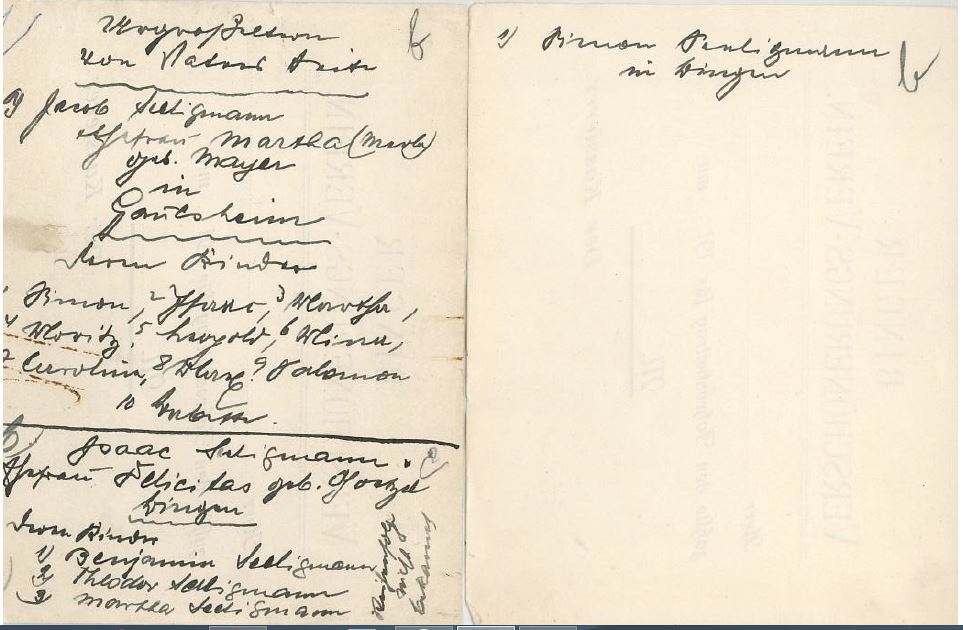 Urgroßeltern
von Vaters Seite
a) Jacob Seligmann
Ehefrau Martha
geb. Mayer
in
Gaulsheim
deren Kinder
1 Simon, 2 Isaac, 3 Martha,
4 Moritz, 5 Leopold, 6 Mina,
7 Carolina, 8 Max, 9 Salomon
10 Babette.
b) Isaac Seligmann
Ehefrau Felicitas geb.
Bingen
deren Kinder
1) Benjamin Seligmann
2) Theodor Seligmann
3) Martha Seligmann
Reihenfolge
nicht
1) Simon Seeligmann
in Bingen